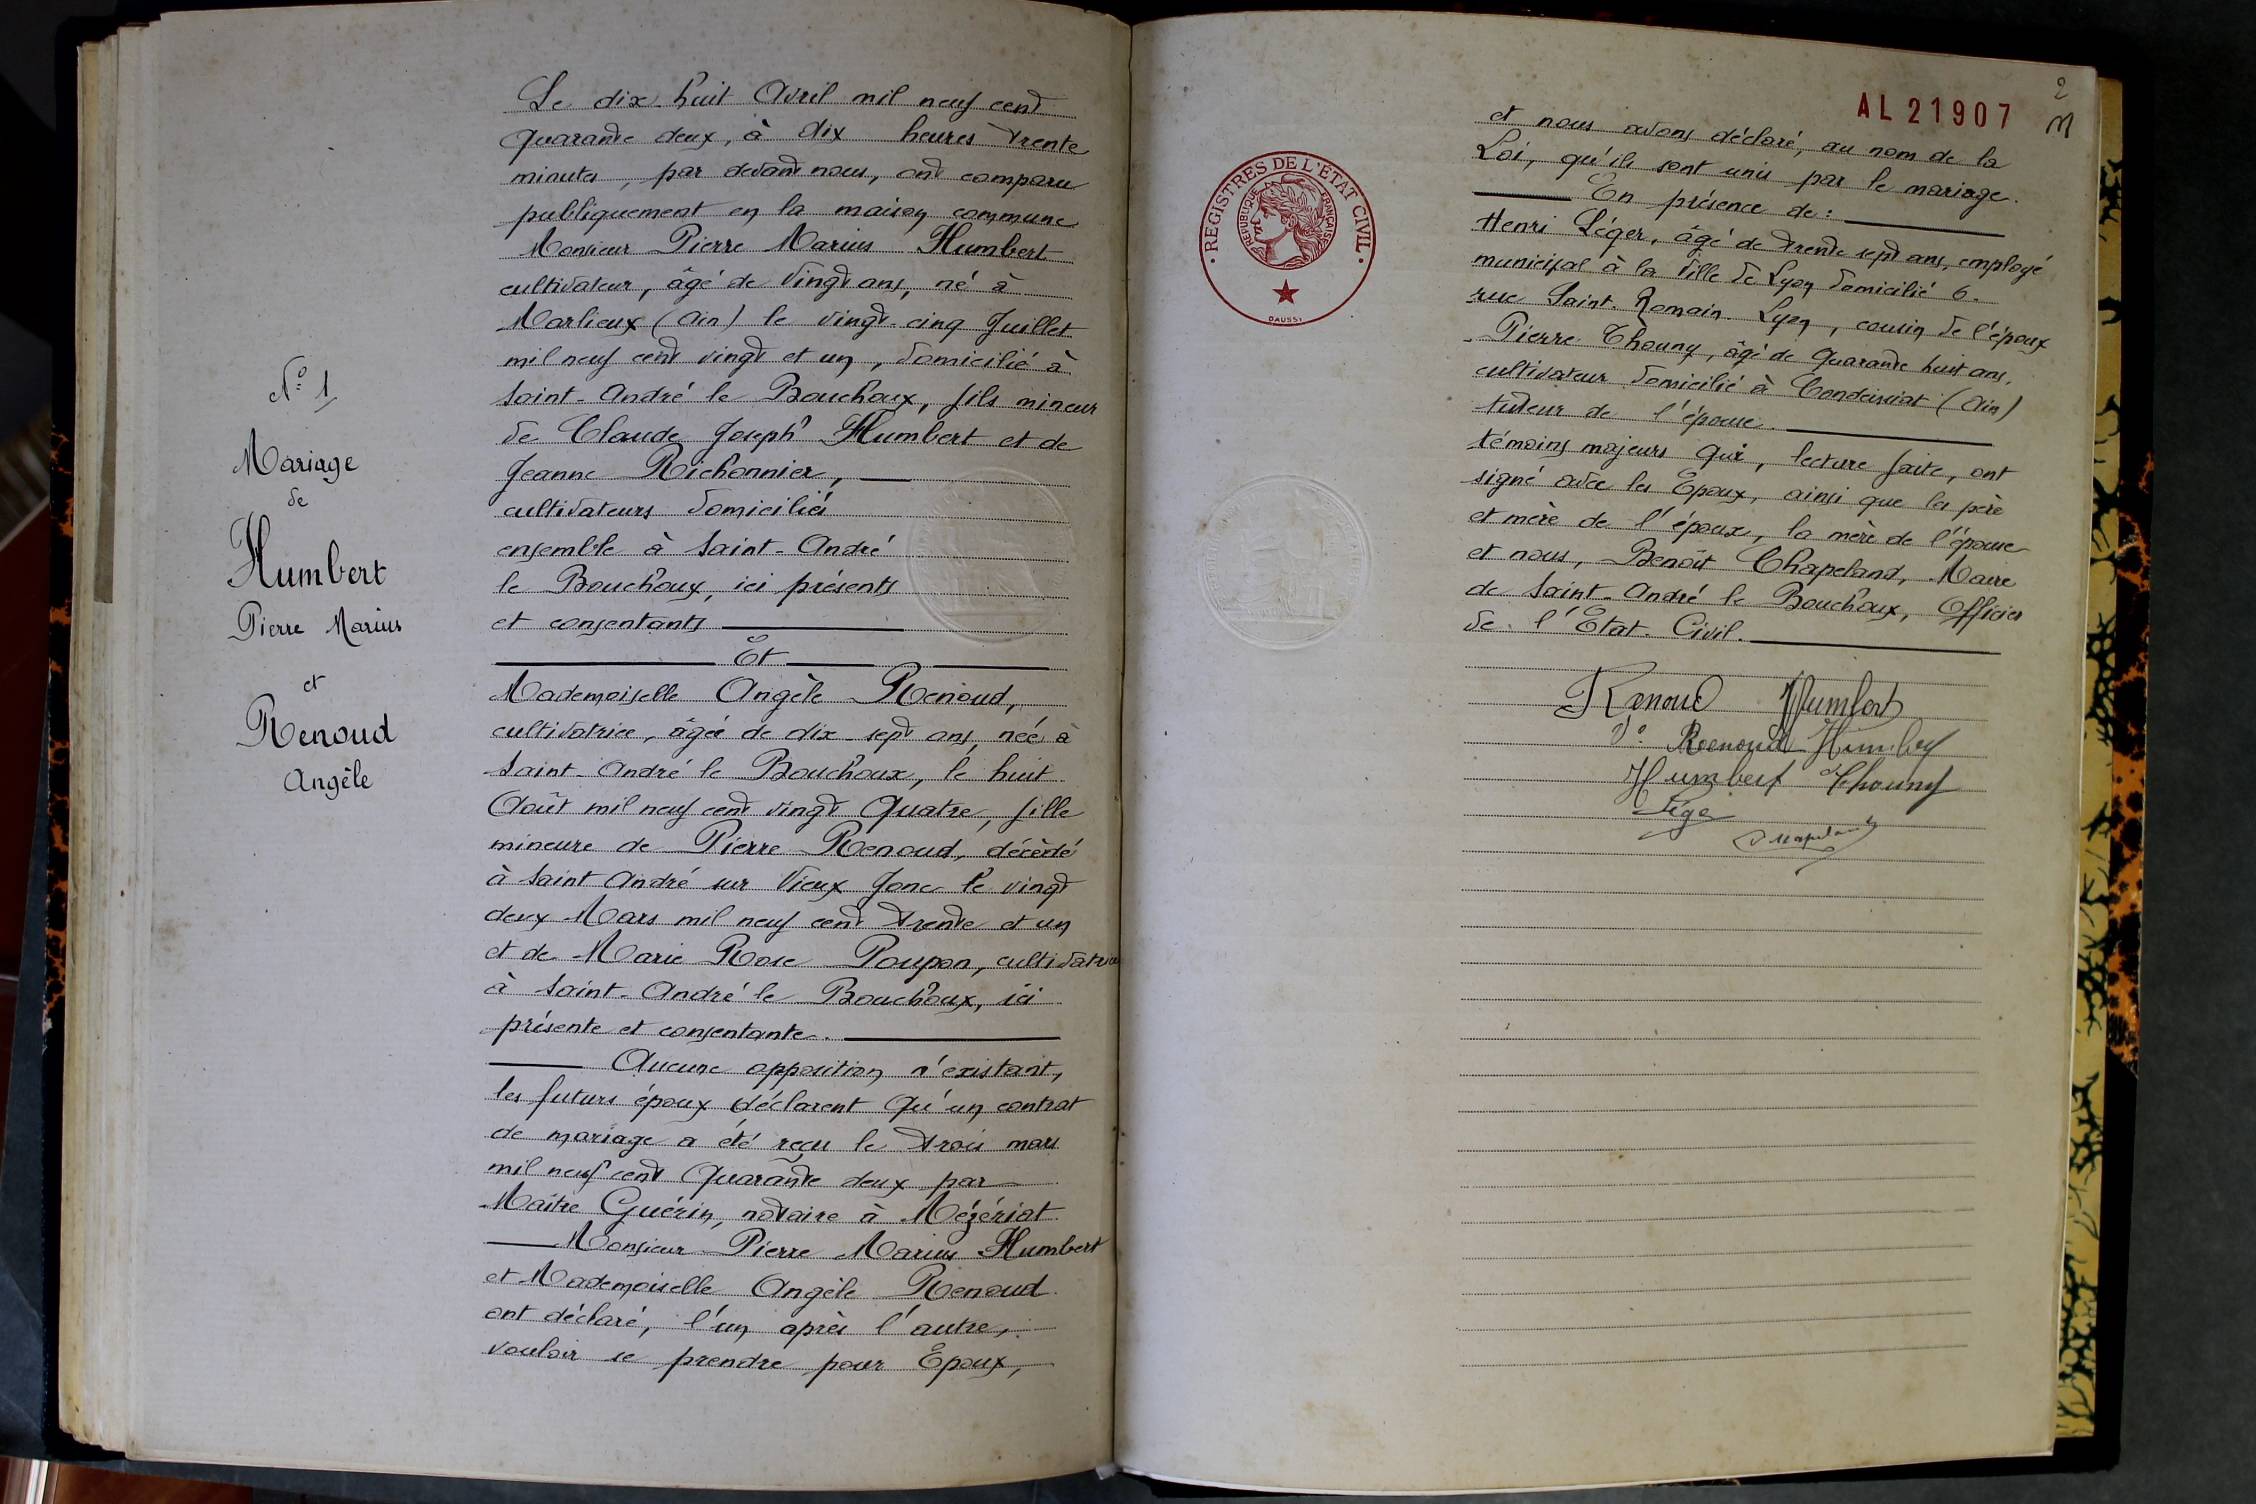 N° 1
Mariage
de
Humbert
Pierre Marius
et
Renoud
Angèle
Le dix-huit Avril mil neuf cent
quarante deux, à dix heures trente
minutes, par devant nous, ont comparu
publiquement en la maison commune
Monsieur Pierre Marius Humbert
cultivateur, âgé de vingt ans, né à
Marlieux (Ain) le vingt-cinq Juillet
mil neuf cent vingt et un, domicilié à
Saint-André le Bouchoux, fils mineur
de Claude Joseph Humbert et de
Jeanne Richonnier,
cultivateurs domiciliés
ensemble à Saint-André
le Bouchoux, ici présents
et consentants
Et
Mademoiselle Angèle Renoud,
cultivatrice, âgée de dix-sept ans, née à
Saint-André le Bouchoux, le huit
Août mil neuf cent vingt quatre, fille
mineure de Pierre Renoud, décédé
à Saint André sur Vieux Jonc le vingt
deux Mars mil neuf cent trente et un
et de Marie Rose Poupon, cultivatrice
à Saint-André le Bouchoux, ici
présente et consentante.
Aucune opposition n'existant,
les futurs époux déclarent qu'un contrat
de mariage a été reçu le trois mars
mil neuf cent quarante deux par
Maître Guérin, notaire à Mézériat
Monsieur Pierre Marius Humbert
et Mademoiselle Angèle Renoud
ont déclaré, l'un après l'autre,
vouloir se prendre pour Epoux,
AL 21907
2
M
REGISTRES DE L'ÉTAT CIVIL
REPUBLIQUE FRANÇAISE
DAUSSY
et nous avons déclaré, au nom de la
Loi, qu'ils sont unis par le mariage.
En présence de :
Henri Léger, âgé de trente sept ans, employé
municipal à la Ville de Lyon domicilié 6.
rue Saint-Romain Lyon, cousin de l'époux
Pierre Thouny, âgé de quarante huit ans,
cultivateur domicilié à Condeissiat (Ain)
tuteur de l'épouse.
témoins majeurs qui, lecture faite, ont
signé avec les Epoux, ainsi que les père
et mère de l'époux, la mère de l'épouse
et nous, Benoît Chapeland, Maire
de Saint-André le Bouchoux, Officier
de l'Etat-Civil.
Renoud Humbert
Vve Renoud Humbert
Humbert Thouny
Léger
Chapeland